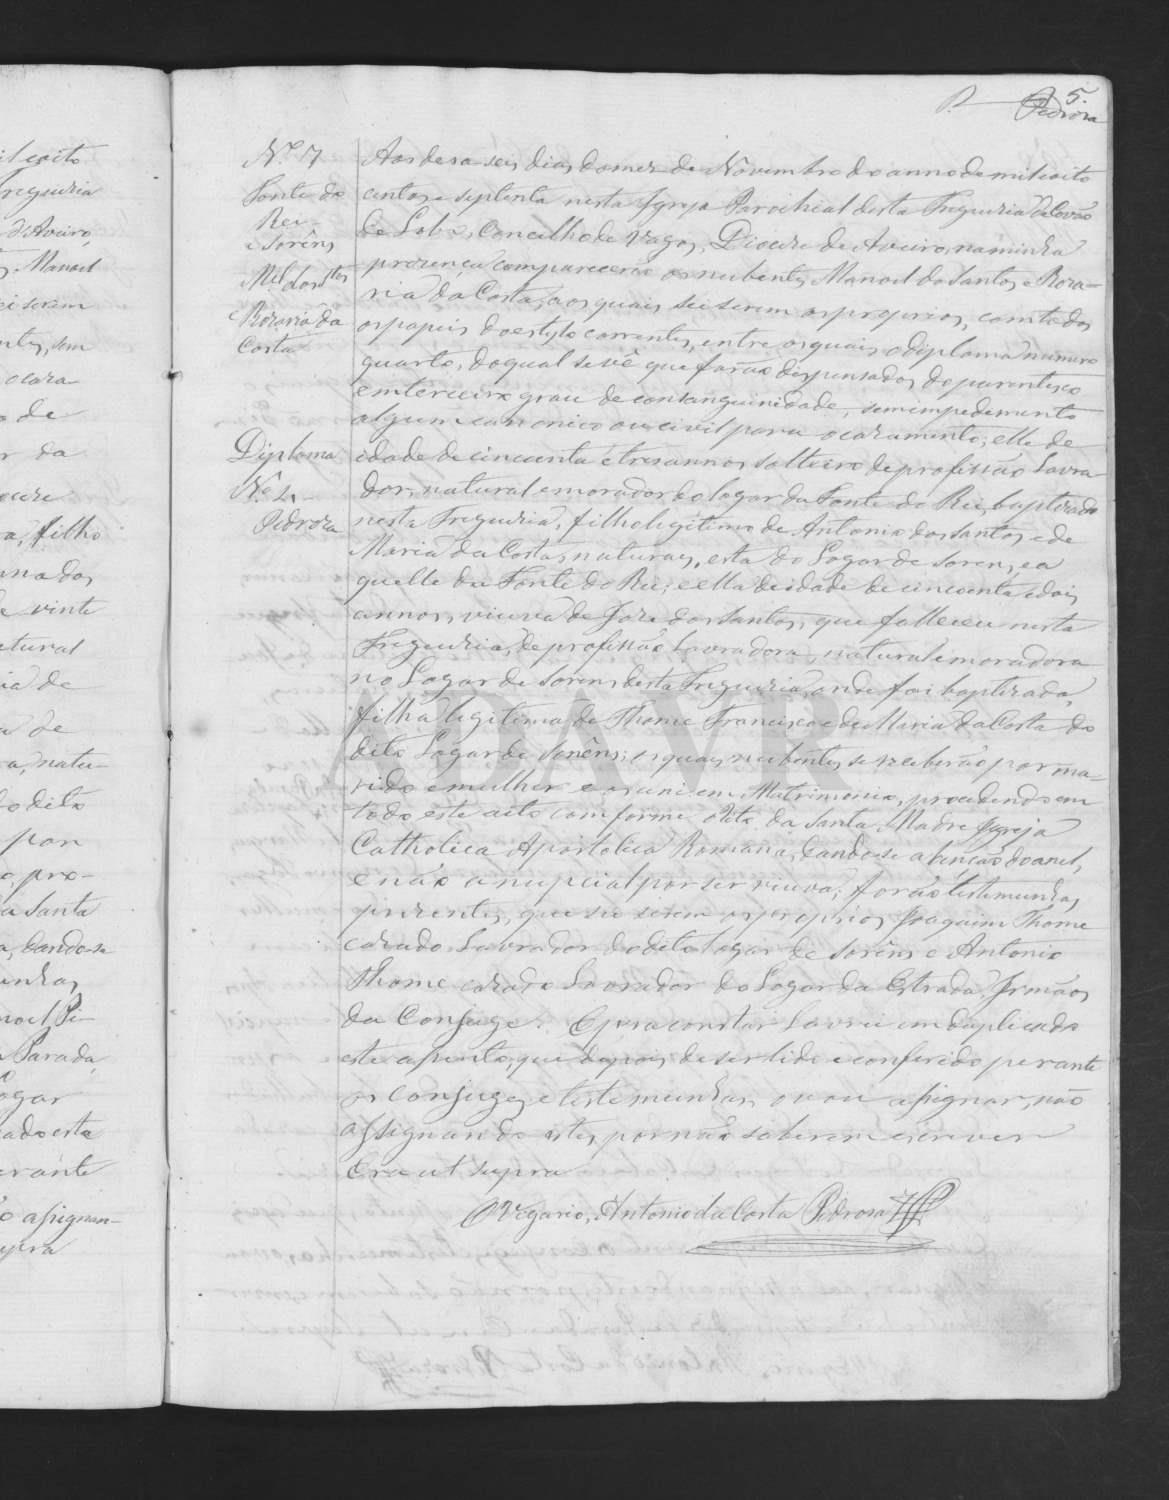 5.
Pedroza
il oito
Freguezia
d'Aveiro,
Manoel
ei serem
ntes, sem
o caza-
o de
r da
a, filho
mados
de vinte
atural
ia de
a de
a, natu-
do dito
por
o, pro-
a Santa
a, dando-se
unhas
noel Pi-
Parada
Logar
ado este
erante
o assignan-
upra
N.º 7
Fonte do
Rei
e Sorêns
M.el dos S.tos
e Rozaria da
Costa
Diploma
N.º 4
Pedroza
Aos deza seis dias do mez de Novembro do anno de mil oito
centos e septenta nesta Igreja Parochial desta Freguezia de Covão
de Lobo, Concelho de Vagos, Diocese de Aveiro, na minha
prezença comparecerão os nubentes Manoel dos Santos e Roza-
ria da Costa, aos quais sei serem os proprios, com todos
os papeis do estylo correntes, entre os quais o diploma numero
quarto, do qual se vê que forão dispensados do parentesco
em terceiro grau de consanguinidade, sem impedimento
algum canonico ou civil para o cazamento; elle de
idade de cincoenta e tres annos solteiro de profissão Lavra-
dor, natural e morador do logar da Fonte do Rei, baptizado
nesta Freguezia, filho legitimo de Antonio dos Santos e de
Maria da Costa, naturaes, esta do Logar de Sorens, e a
quelle da Fonte do Rei; e ella de idade de cincoenta e dois
annos, viuva de Joze dos Santos, que falleceu nesta
Freguezia, de profissão Lavradora, natural e moradora
no Logar de Sorens desta Freguezia, onde foi baptizada,
filha legitima de Thome Francisco e de Maria da Costa do
dito Logar de Sorêns; os quaes nubentes se receberão por ma-
rido e mulher e os uni em Matrimonio, procedendo em
todo este acto comforme o rito da Santa Madre Igreja
Catholica Apostolica Romana, dando-se a benção do anel,
e não a nupcial por ser viuva; forão testemunhas
prezentes, que sei serem os proprios, Joaquim Thome
cazado Lavrador do dito logar de Sorêns e Antonio
Thome cazado Lavrador do Logar da Estrada Irmãos
da Conjuge. E para constar Lavrei em duplicado
este assento, que depois de ser lido e conferido perante
os Conjuges e testemunhas, o vou assignar, não
assignando estes por não saberem escrever
Era ut supra
O Vigario, Antonio da Costa Pedroza
ADAVR